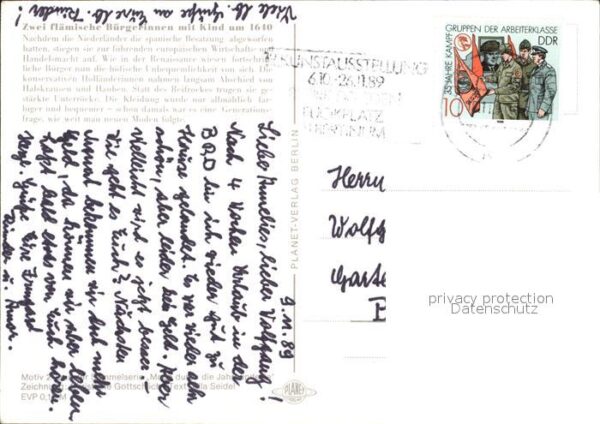 Viele lb. Grüße an Eure lb. Kinder!
Zwei flämische Bürgerinnen mit Kind um 1640
Nachdem die Niederländer die spanische Besatzung abgeworfen
hatten, stiegen sie zur führenden europäischen Wirtschafts- und
Handelsmacht auf. Wie in der Renaissance wiesen fortschritt-
liche Bürger nun die höfische Unbequemlichkeit von sich. Die
konservativen Holländerinnen nahmen langsam Abschied von
Halskrausen und Hauben. Statt des Reifrockes trugen sie ge-
stärkte Unterröcke. Die Kleidung wurde nur allmählich far-
biger und bequemer – schon damals war es eine Generations-
frage, wie weit man neuen Moden folgte.
9.11.89
Liebe Annelies, lieber Wolfgang!
Nach 4 Wochen Urlaub in der
BRD bin ich wieder gut zu
Hause gelandet. Es war wieder sehr
schön, aber leider kein Geld. Hier
vielleicht wird es jetzt besser –
Wie geht es Euch? Nächsten
Monat bekommen wir das neue
Geld, da können wir aber lieben
Laßt bald etwas von Euch hören.
Herzl. Grüße Eure Irmgard
Kinder u.
Motiv 2 Sammelserie „Mode durch die Jahrhunderte“
Zeichnung: Gottschalk Text: Seidel
EVP 0,
PLANET-VERLAG BERLIN
PLANET
KUNSTAUSSTELLUNG
6.10.-26.11.89
FUCIKPLATZ
ALBERTINUM
35 JAHRE KAMPFGRUPPEN DER ARBEITERKLASSE
DDR
10
Herrn
Wolfg
Garte
privacy protection
Datenschutz